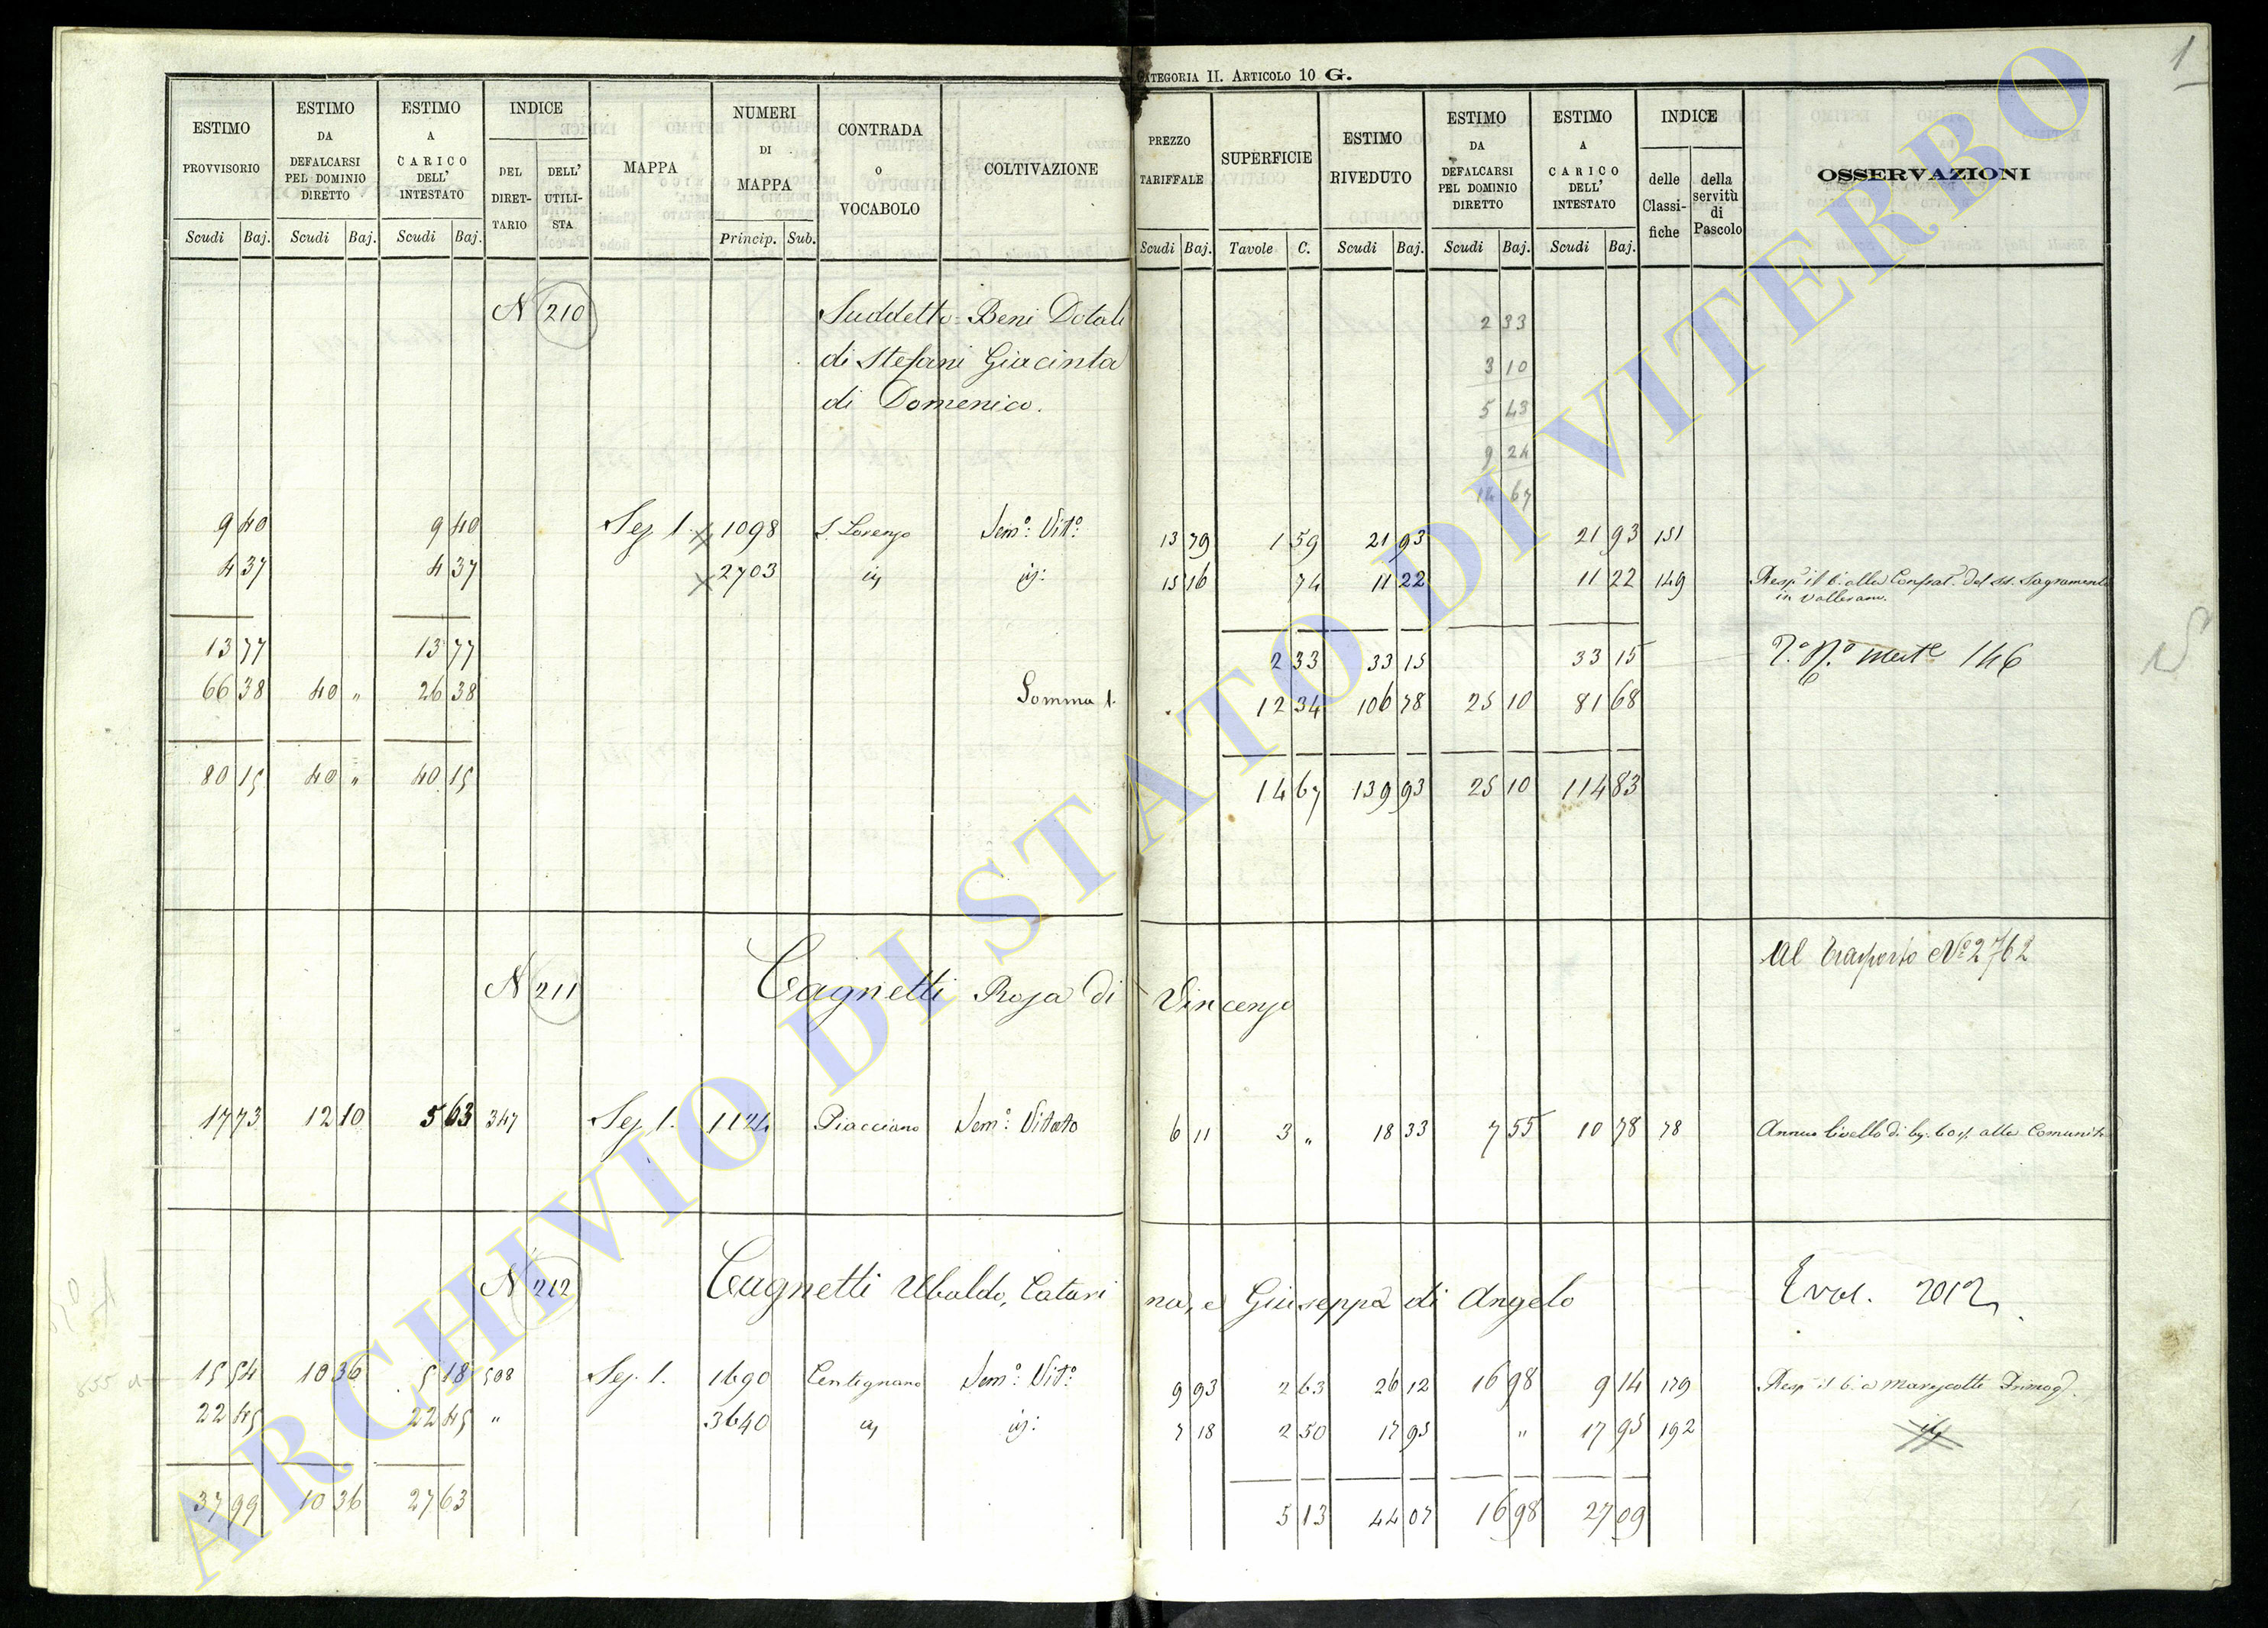 CATEGORIA II. ARTICOLO 10 G.
1
ESTIMO PROVVISORIO
ESTIMO DA DEFALCARSI PEL DOMINIO DIRETTO
ESTIMO A CARICO DELL' INTESTATO
INDICE
DEL DIRET-TARIO
DELL' UTILI-STA
MAPPA
NUMERI DI MAPPA
CONTRADA O VOCABOLO
COLTIVAZIONE
PREZZO TARIFFALE
SUPERFICIE
ESTIMO RIVEDUTO
ESTIMO DA DEFALCARSI PEL DOMINIO DIRETTO
ESTIMO A CARICO DELL' INTESTATO
INDICE
delle Classi-fiche
della servitù di Pascolo
OSSERVAZIONI
Scudi Baj. Scudi Baj. Scudi Baj. Princip. Sub. Scudi Baj. Tavole C. Scudi Baj. Scudi Baj. Scudi Baj.
N 210 Suddetto = Beni Dotali 2 33
di Stefani Giacinta 3 10
di Domenico. 5 43
9 24
14 67
9 40 9 40 Sez 1. 1098 S. Lorenzo Semo: Vito: 13 79 1 59 21 93 21 93 151
4 37 4 37 2703 15 16 74 11 22 11 22 149 Resp. il 6. alla Confrat. del SS. Sagramento
in Vallerano.
13 77 13 77 2 33 33 15 33 15 146
66 38 40 " 26 38 Somma 1. 12 34 106 78 25 10 81 68
80 15 40 " 40 15 14 67 139 93 25 10 114 83
Al trasporto No 2762
N 211 Cagnetti Rosa di Vincenzo
17 73 12 10 5 63 347 Sez 1. 1124 Piacciano Semo: Vitato 6 11 3 " 18 33 7 55 10 78 78 Annuo livello di alla Comunità
N 212 Cagnetti Ubaldo, Catari na, e Giuseppa di Angelo 2012
15 54 10 36 5 18 508 Sez. 1. 1690 Centignano Semo: Vito: 9 93 2 63 26 12 16 98 9 14 179 Resp. il 6. a Marescotti
22 45 22 45 " 3640 7 18 2 50 17 95 " 17 95 192
37 99 10 36 27 63 5 13 44 07 16 98 27 09
ARCHIVIO DI STATO DI VITERBO